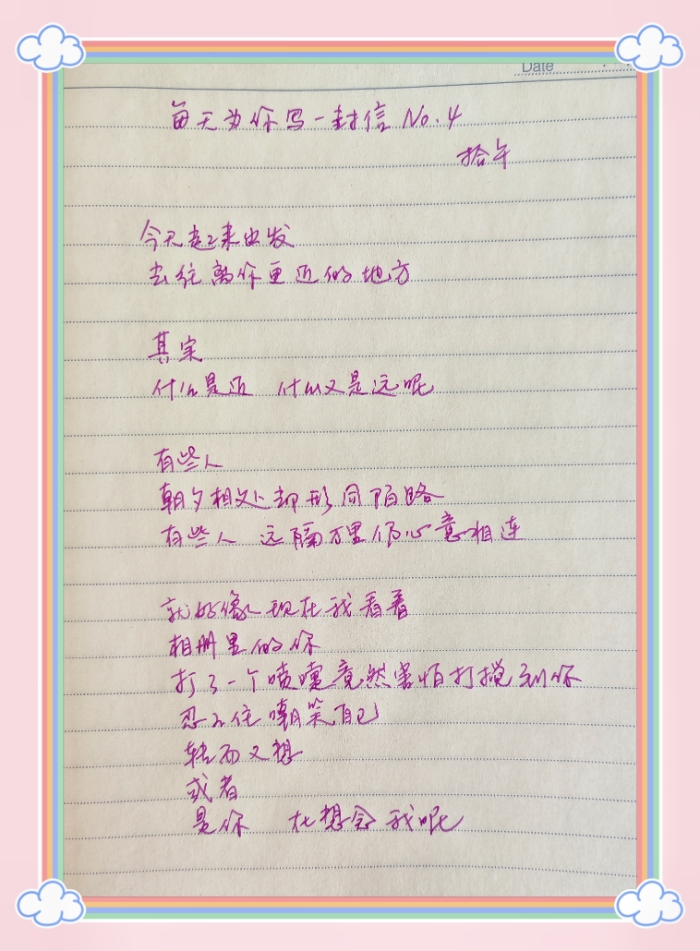 Date
每天为你写一封信 No.4
拾午
今天起来出发
去往离你更近的地方
其实
什么是近 什么又是远呢
有些人
朝夕相处却形同陌路
有些人 远隔万里仍心意相连
就好像现在我看着
相册里的你
打了一个喷嚏竟然害怕打搅到你
忍不住嘲笑自己
转而又想
或者
是你 在想念我呢